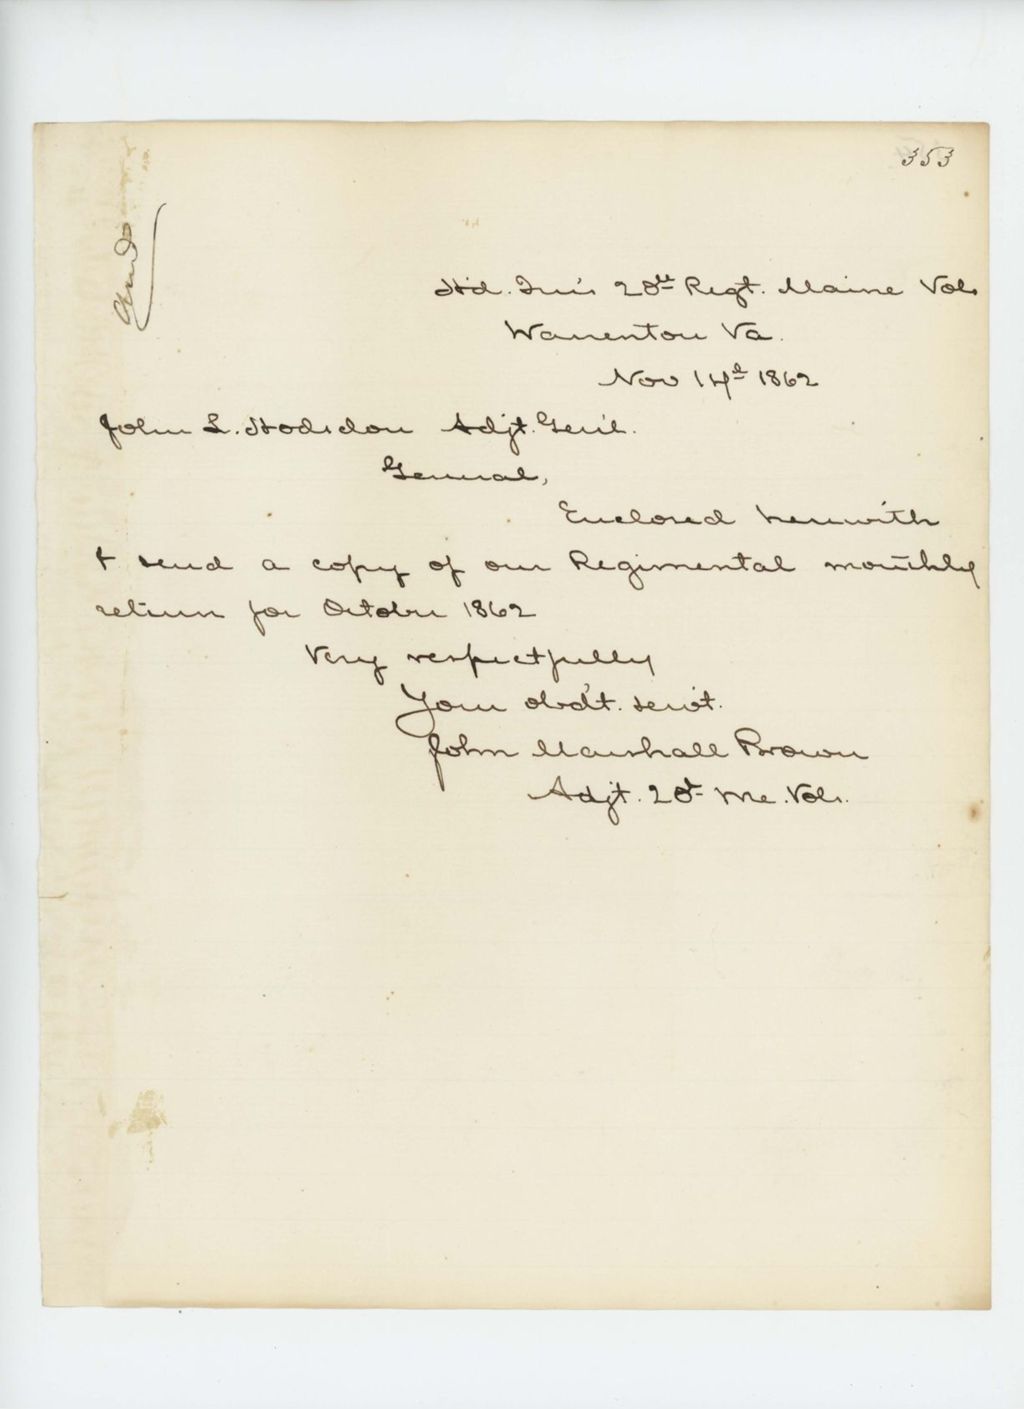 353
Ansd
Hd. Qrs. 20th Regt. Maine Vols
Warrenton Va.
Nov 14th 1862
John L. Hodsdon Adjt. Gen'l.
General,
Enclosed herewith
I send a copy of our Regimental monthly
return for October 1862
Very respectfully
Your obd't. serv't.
John Marshall Brown
Adjt. 20th Me. Vols.